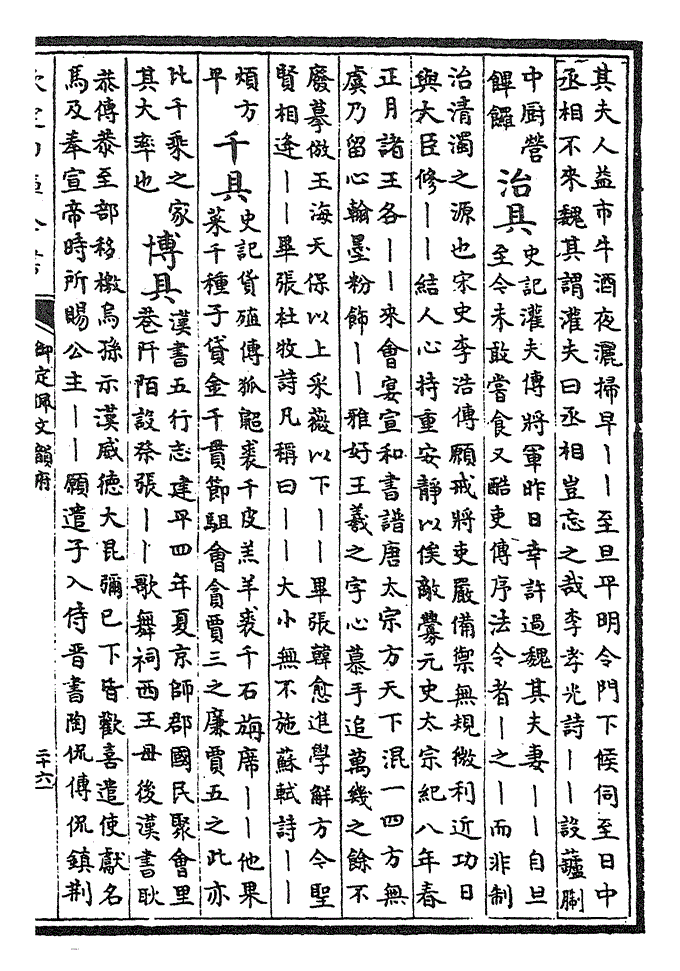 其夫人益市牛酒夜灑掃早——至旦平明令門下候伺至日中
丞相不來魏其謂灌夫曰丞相豈忘之哉李孝光詩——設
中厨營
饆饠
治具
史記灌夫傳將軍昨日幸許過魏其夫妻——自旦
至今未敢嘗食又酷吏傳序法令者—之—而非制
治清濁之源也宋史李浩傳願戒將吏嚴備禦無規微利近功日
與大臣修——結人心持重安靜以俟敵釁元史太宗紀八年春
正月諸王各——來會宴宣和書譜唐太宗方天下混一四方無
虞乃留心翰墨粉飾——雅好王羲之字心慕手追萬幾之餘不
廢摹倣王海天保以上采薇以下——畢張韓愈進學解方今聖
賢相逢——畢張杜牧詩凡稱曰——大小無不施蘇軾詩——
煩方
早
千具
史記貨殖傳狐鼦裘千皮羔羊裘千石旃席——他果
菜千種子貸金千貫節駔會貪賈三之廉賈五之此亦
比千乘之家
其大率也
博具
漢書五行志建平四年夏京師郡國民聚會里
巷阡陌設祭張——歌舞祠西王母後漢書耿
恭傳恭至部移檄烏孫示漢威德大昆彌已下皆歡喜遣使獻名
馬及奉宣帝時所賜公主——願遣子入侍晉書陶侃傳侃鎮荆
御定佩文韻府
二十六